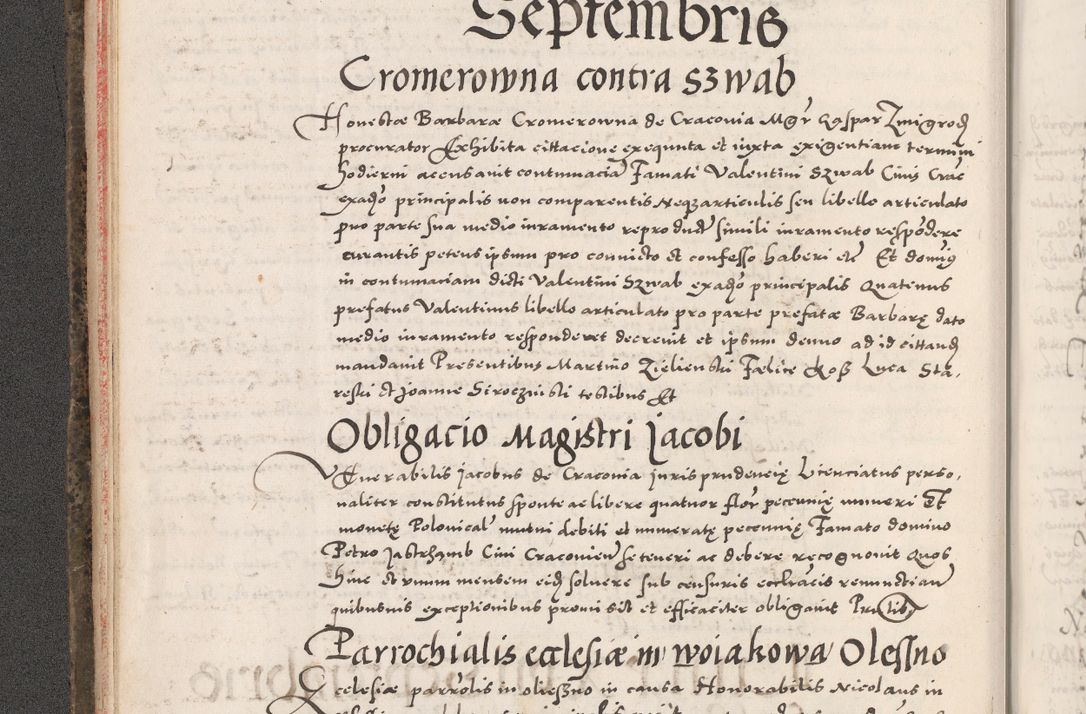 Septembris
Cromerowna contra Szwab
Honestæ Barbaræ Cromerowna de Cracovia Mgr Gaspar Zmigrod
procurator Exhibita cittacione exequuta et iuxta exigentiam termini
hodierni acensavit contumaciā Famati Valentini Szwab Civis Crac
ex adō principalis non comparentis Neqz articulis seu libello articulato
pro parte sua medio iuramento reproduct simili iuramento respōdere
curantis petens ipsum pro convicto et confesso haberi etc Et domīs
in contumaciam dicti Valentini Szwab ex adō principalis Quatenus
prefatus Valentinus libello articulato pro parte prefatæ Barbarę dato
medio iuramento responderet decrevit et ipsum denuo ad id cittand
mandavit Presentibus Martino Zielienski Fælice Koss Luca Sta,
reski et Joanne Siroczinski testibus Et
Obligacio Magistri Jacobi
Venerabilis Jacobus de Cracovia iuris prudencię Licenciatus perso,
naliter constitutus sponte ac libere quatuor flor pecunię numeri Et
monetę Polonical mutui debiti et numeratę pecunię Famato domino
Petro Jastrzamb Civi Cracovien se teneri ac debere recognovit Quos
hinc et unum mensem eid solvere sub censuris ecclīacis renunctian
quibusvis exceptionibus promisit et efficaciter obligavit Pntibus
Parrochialis ecclesiæ in woiakowa Olessno
Ecclesiæ parrolis in oliesszno in causa Honorabilis Nicolaus in